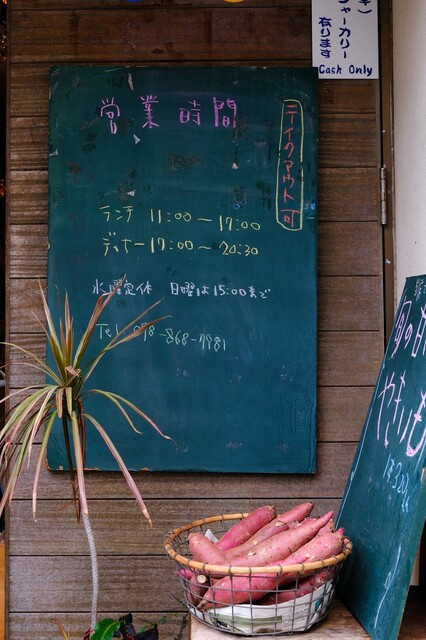 ジャーカリー
有ります
Cash Only
営業時間
テイクアウト可
ランチ 11:00〜17:00
ディナー17:00〜20:30
水曜定休 日曜は15:00まで
Tel 098-868-7981
旬の
やきいも